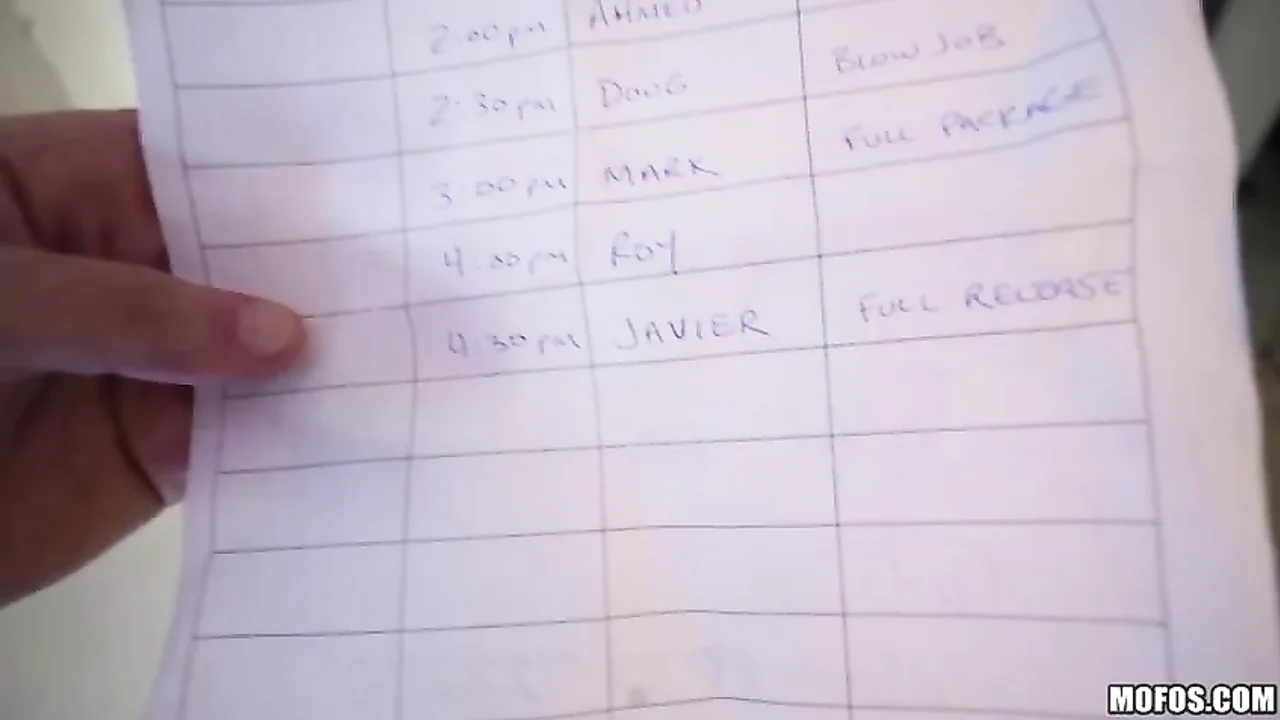 2:00pm AHMED
2:30pm DOUG BLOW JOB
3:00pm MARK FULL PACKAGE
4:00pm ROY
4:30pm JAVIER FULL RELEASE
MOFOS.COM